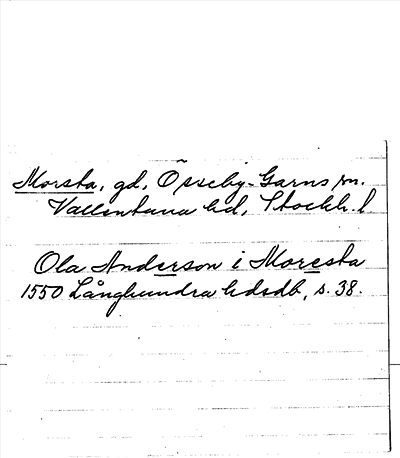 Morsta, gd, Össeby-Garns sn.
Vallentuna hd, Stockh. l
Ola Anderson i Moresta
1550 Långhundra hdsdb, s. 38.